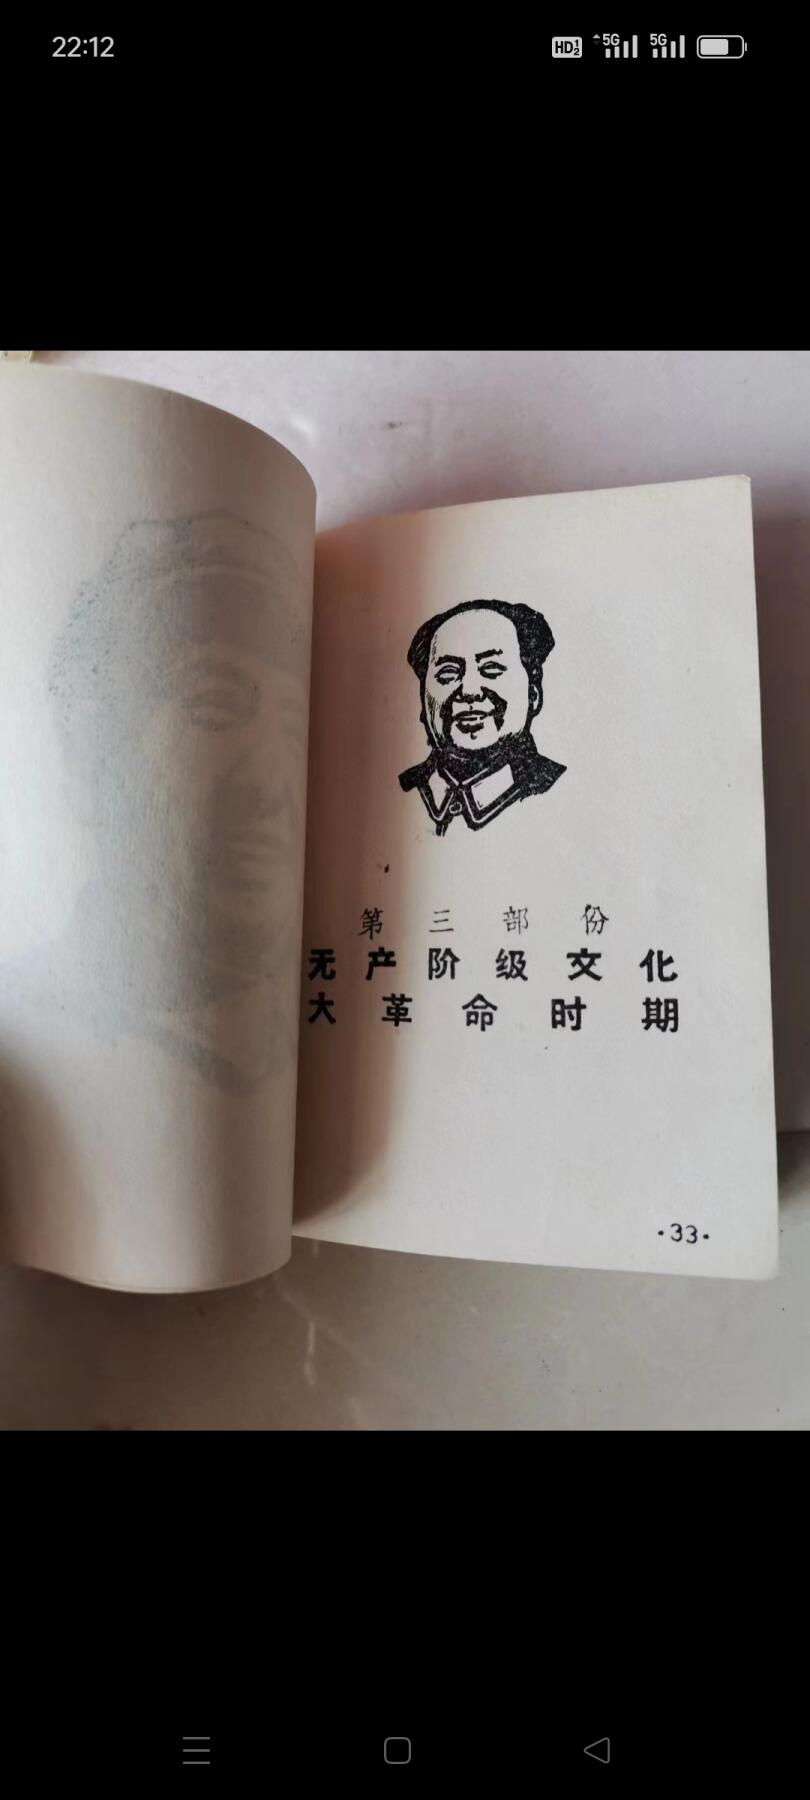 22:12
HD 1 2 5G 5G
第三部份
无产阶级文化
大革命时期
·33·